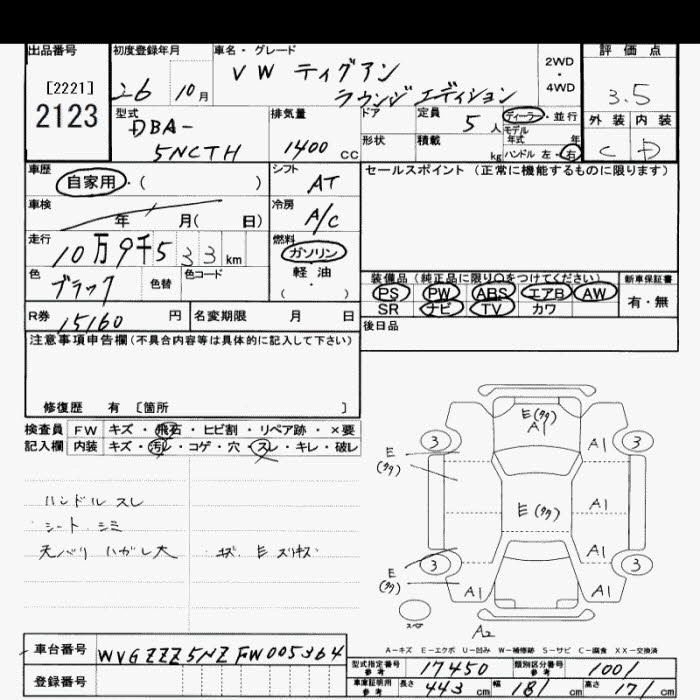 出品番号 初度登録年月 車名・グレード 2WD・4WD 評価点
[2221] 2123 26 10月 VW ティグアン
ラウンジ エディション 3.5
型式 DBA-5NCTH 排気量 1400cc ドア 定員 5人 ディーラー・並行 外装 内装
形状 積載 kg モデル年式 年 ハンドル 左・右 C D
車歴 自家用・( ) シフト AT セールスポイント(正常に機能するものに限ります)
車検 年 月( 日) 冷房 A/C
走行 10万9千533km 燃料 ガソリン 軽油 (・)
色 ブラック 色替 色コード
装備品(純正品に限り○をつけてください) 新車保証書
PS PW ABS エアB AW 有・無
SR ナビ TV カワ
R券 15160円 名変期限 月 日 後日品
注意事項申告欄(不具合内容等は具体的に記入して下さい)
修復歴 有 [箇所 ]
検査員 FW キズ・飛石・ヒビ割・リペア跡・×要
記入欄 内装 キズ・汚レ・コゲ・穴・スレ・キレ・破レ
ハンドル スレ
シート シミ
天バリ ハガレ大 キズ E スリキズ
E(タタ)
A1
3 A1 3
E
(タタ)
A1
E(タタ)
A1
3 3
E
(タタ) A1 A1
スペア A2
A-キズ E-エクボ U-凹み W-補修跡 S-サビ C-腐食 XX-交換済
車台番号 WVGZZZ5NZFW005364
登録番号
型式指定番号 参考 17450 類別区分番号 参考 1001
車庫証明用 参考 長さ 443cm 幅 181cm 高さ 171cm